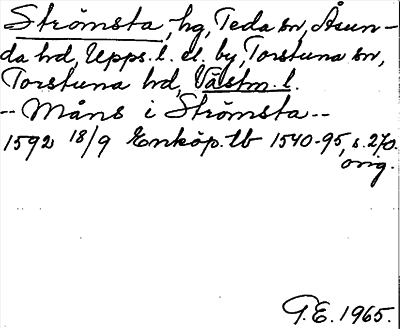 Strömsta, hg, Teda sn, Åsun-
da hd, Upps. l. el. by, Torstuna sn,
Torstuna hd, Västm. l.
-- Måns i Strömsta --
1592 18/9 Enköp. tb 1540-95, s. 270.
orig.
G.E. 1965.